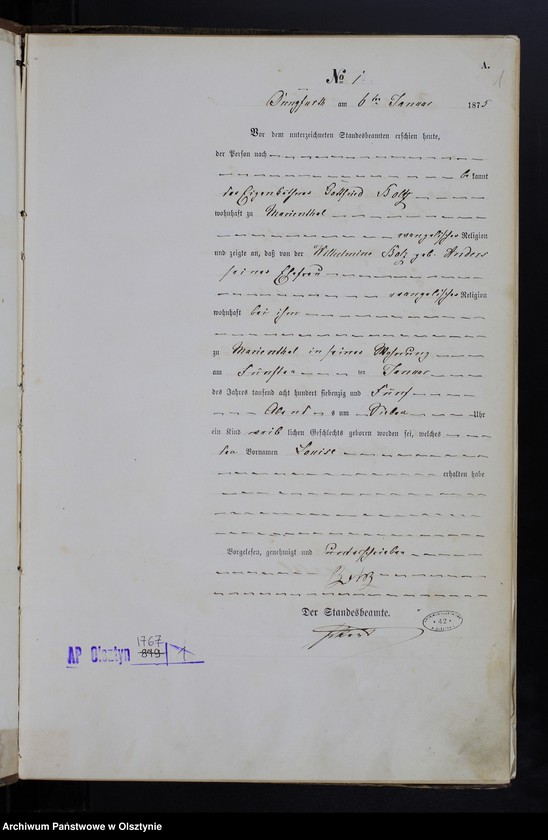 A.
1
No 1
am 6ten Januar 1875
Vor dem unterzeichneten Standesbeamten erschien heute,
der Person nach
bekannt
der Eigenkäthner Gottfried Botz
wohnhaft zu Marienthal
evangelischer Religion
und zeigte an, daß von der Wilhelmine Botz geb. Anders
seiner Ehefrau
evangelischer Religion
wohnhaft bei ihm
zu Marienthal in seiner Wohnung
am Fünften ten Januar
des Jahres tausend acht hundert siebenzig und Fünf
Abends um Sieben Uhr
ein Kind weiblichen Geschlechts geboren worden sei, welches
den Vornamen Louise
erhalten habe
Vorgelesen, genehmigt und unterschrieben
Botz
Der Standesbeamte.
42
AP Olsztyn 1767 849 1
Archiwum Państwowe w Olsztynie